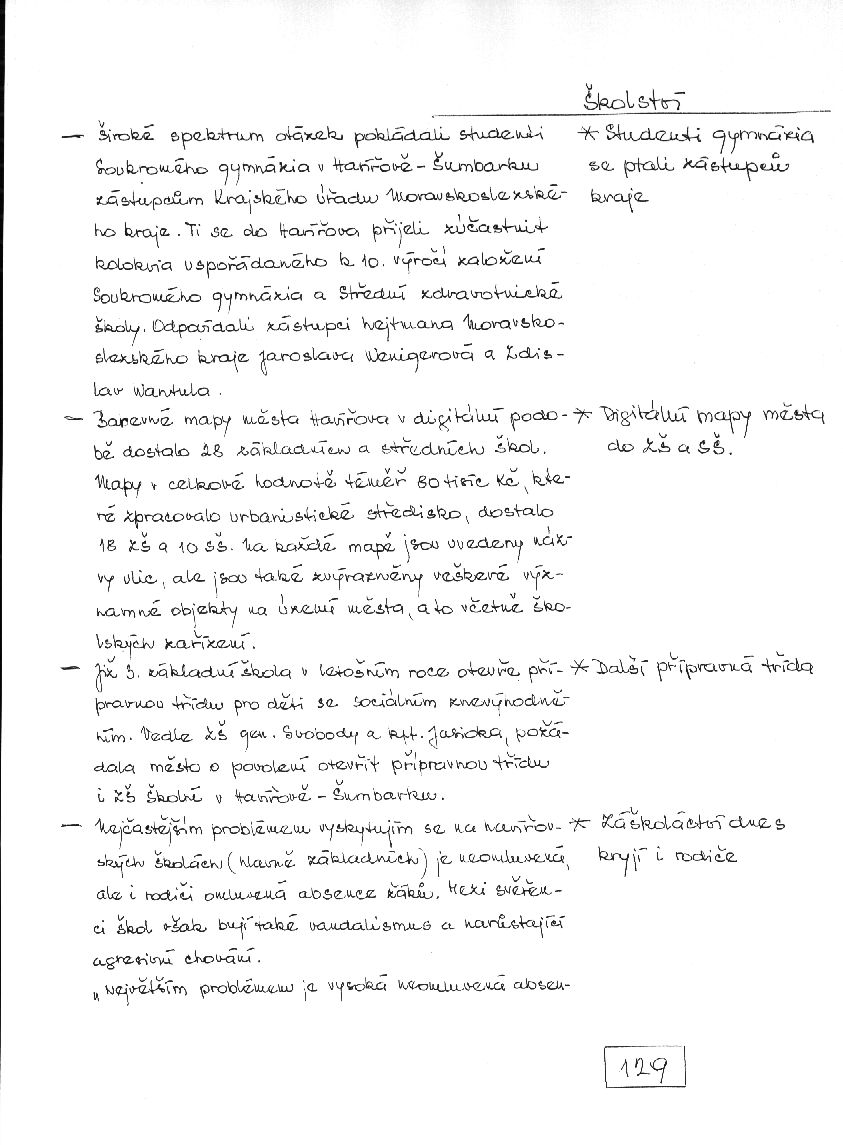 Školství
— Široké spektrum otázek pokládali studenti
Soukromého gymnázia v Havířově - Šumbarku
zástupcům Krajského úřadu Moravskoslezské-
ho kraje. Ti se do Havířova přijeli zúčastnit
kolokvia uspořádaného k 10. výročí založení
Soukromého gymnázia a Střední zdravotnické
školy. Odpovídali zástupci hejtmana Moravsko-
slezského kraje Jaroslava Wenigerová a Zdis-
lav Wantula.
* Studenti gymnázia
se ptali zástupců
kraje
— Barevné mapy města Havířova v digitální podo-
bě dostalo 28 základních a středních škol.
Mapy v celkové hodnotě téměř 80 tisíc Kč, kte-
ré zpracovalo urbanistické středisko, dostalo
18 ZŠ a 10 SŠ. Na každé mapě jsou uvedeny náz-
vy ulic, ale jsou také zvýrazněny veškeré výz-
namné objekty na území města, a to včetně ško-
lských zařízení.
* Digitální mapy města
do ZŠ a SŠ.
— Již 3. základní škola v letošním roce otevře pří-
pravnou třídu pro děti se sociálním znevýhodně-
ním. Vedle ZŠ gen. Svobody a kpt. Jasioka, požá-
dala město o povolení otevřít přípravnou třídu
i ZŠ Školní v Havířově - Šumbarku.
* Další přípravná třída
— Nejčastějším problémem vyskytujím se na havířov-
ských školách (hlavně základních) je neomluvená,
ale i rodiči omluvená absence žáků. Mezi svěřen-
ci škol však bují také vandalismus a narůstající
agresivní chování.
„Největším problémem je vysoká neomluvená absen-
* Záškoláctví dnes
kryjí i rodiče
129